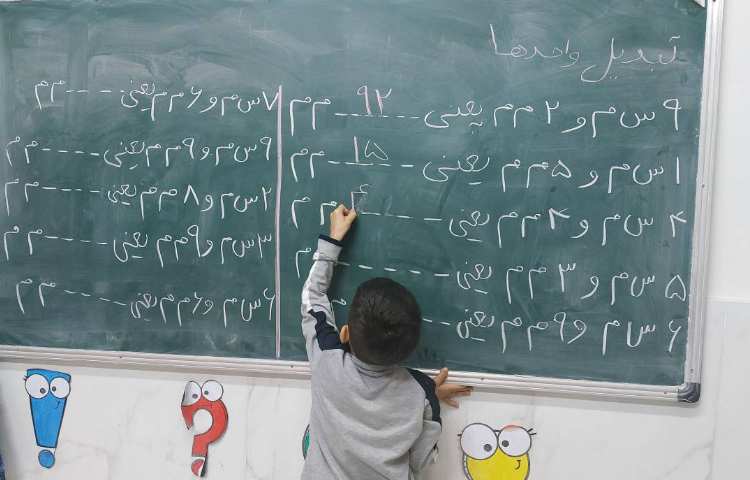 تبدیل واحدها
۹ س م و ۲ م م یعنی ۹۲ م م
۱ س م و ۵ م م یعنی ۱۵ م م
۴ س م و ۴ م م یعنی ---- م م
۵ س م و ۳ م م یعنی ---- م
۶ س م و ۹ م م یعنی ----
۷ س م و ۶ م م یعنی ---- م م
۹ س م و ۹ م م یعنی ---- م م
۲ س م و ۸ م م یعنی ---- م م
۳ س م و ۹ م م یعنی ---- م م
۶ س م و ۶ م م یعنی ---- م م